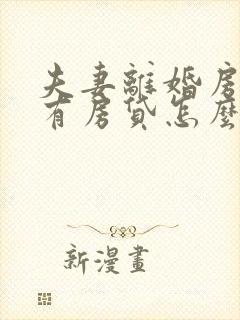 夫妻離婚房
有房贷怎麽
新漫畫